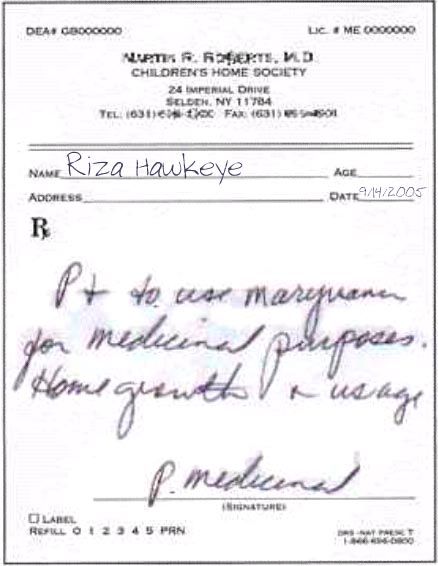 DEA# GB000000 LIC. # ME 0000000
MARTIN R. ROBERTS, M.D.
CHILDREN'S HOME SOCIETY
24 IMPERIAL DRIVE
SELDEN, NY 11784
TEL: (631) FAX: (631)
NAME Riza Hawkeye AGE
ADDRESS DATE 9/14/2005
Rx
Pt to use marijuana
for medicinal purposes.
Home growth + usage
P. medicinal
(SIGNATURE)
☐ LABEL
REFILL 0 1 2 3 4 5 PRN